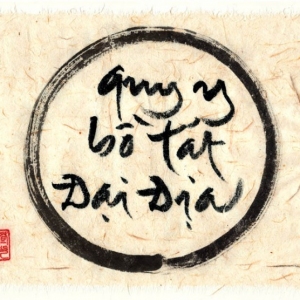 quy y
bồ tát
Đại Địa